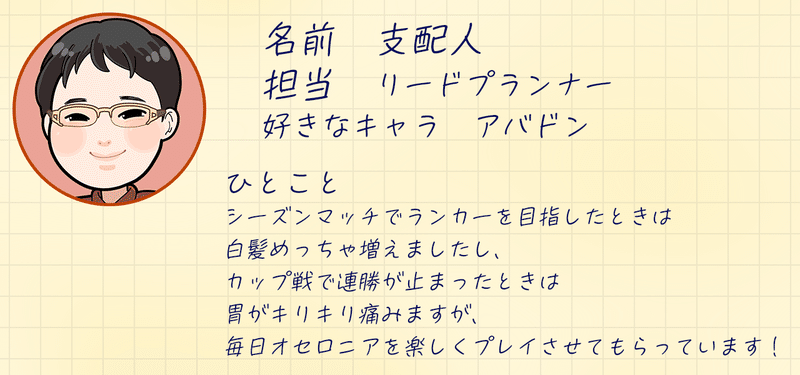 名前　支配人
担当　リードプランナー
好きなキャラ　アバドン
ひとこと
シーズンマッチでランカーを目指したときは
白髪めっちゃ増えましたし、
カップ戦で連勝が止まったときは
胃がキリキリ痛みますが、
毎日オセロニアを楽しくプレイさせてもらっています！